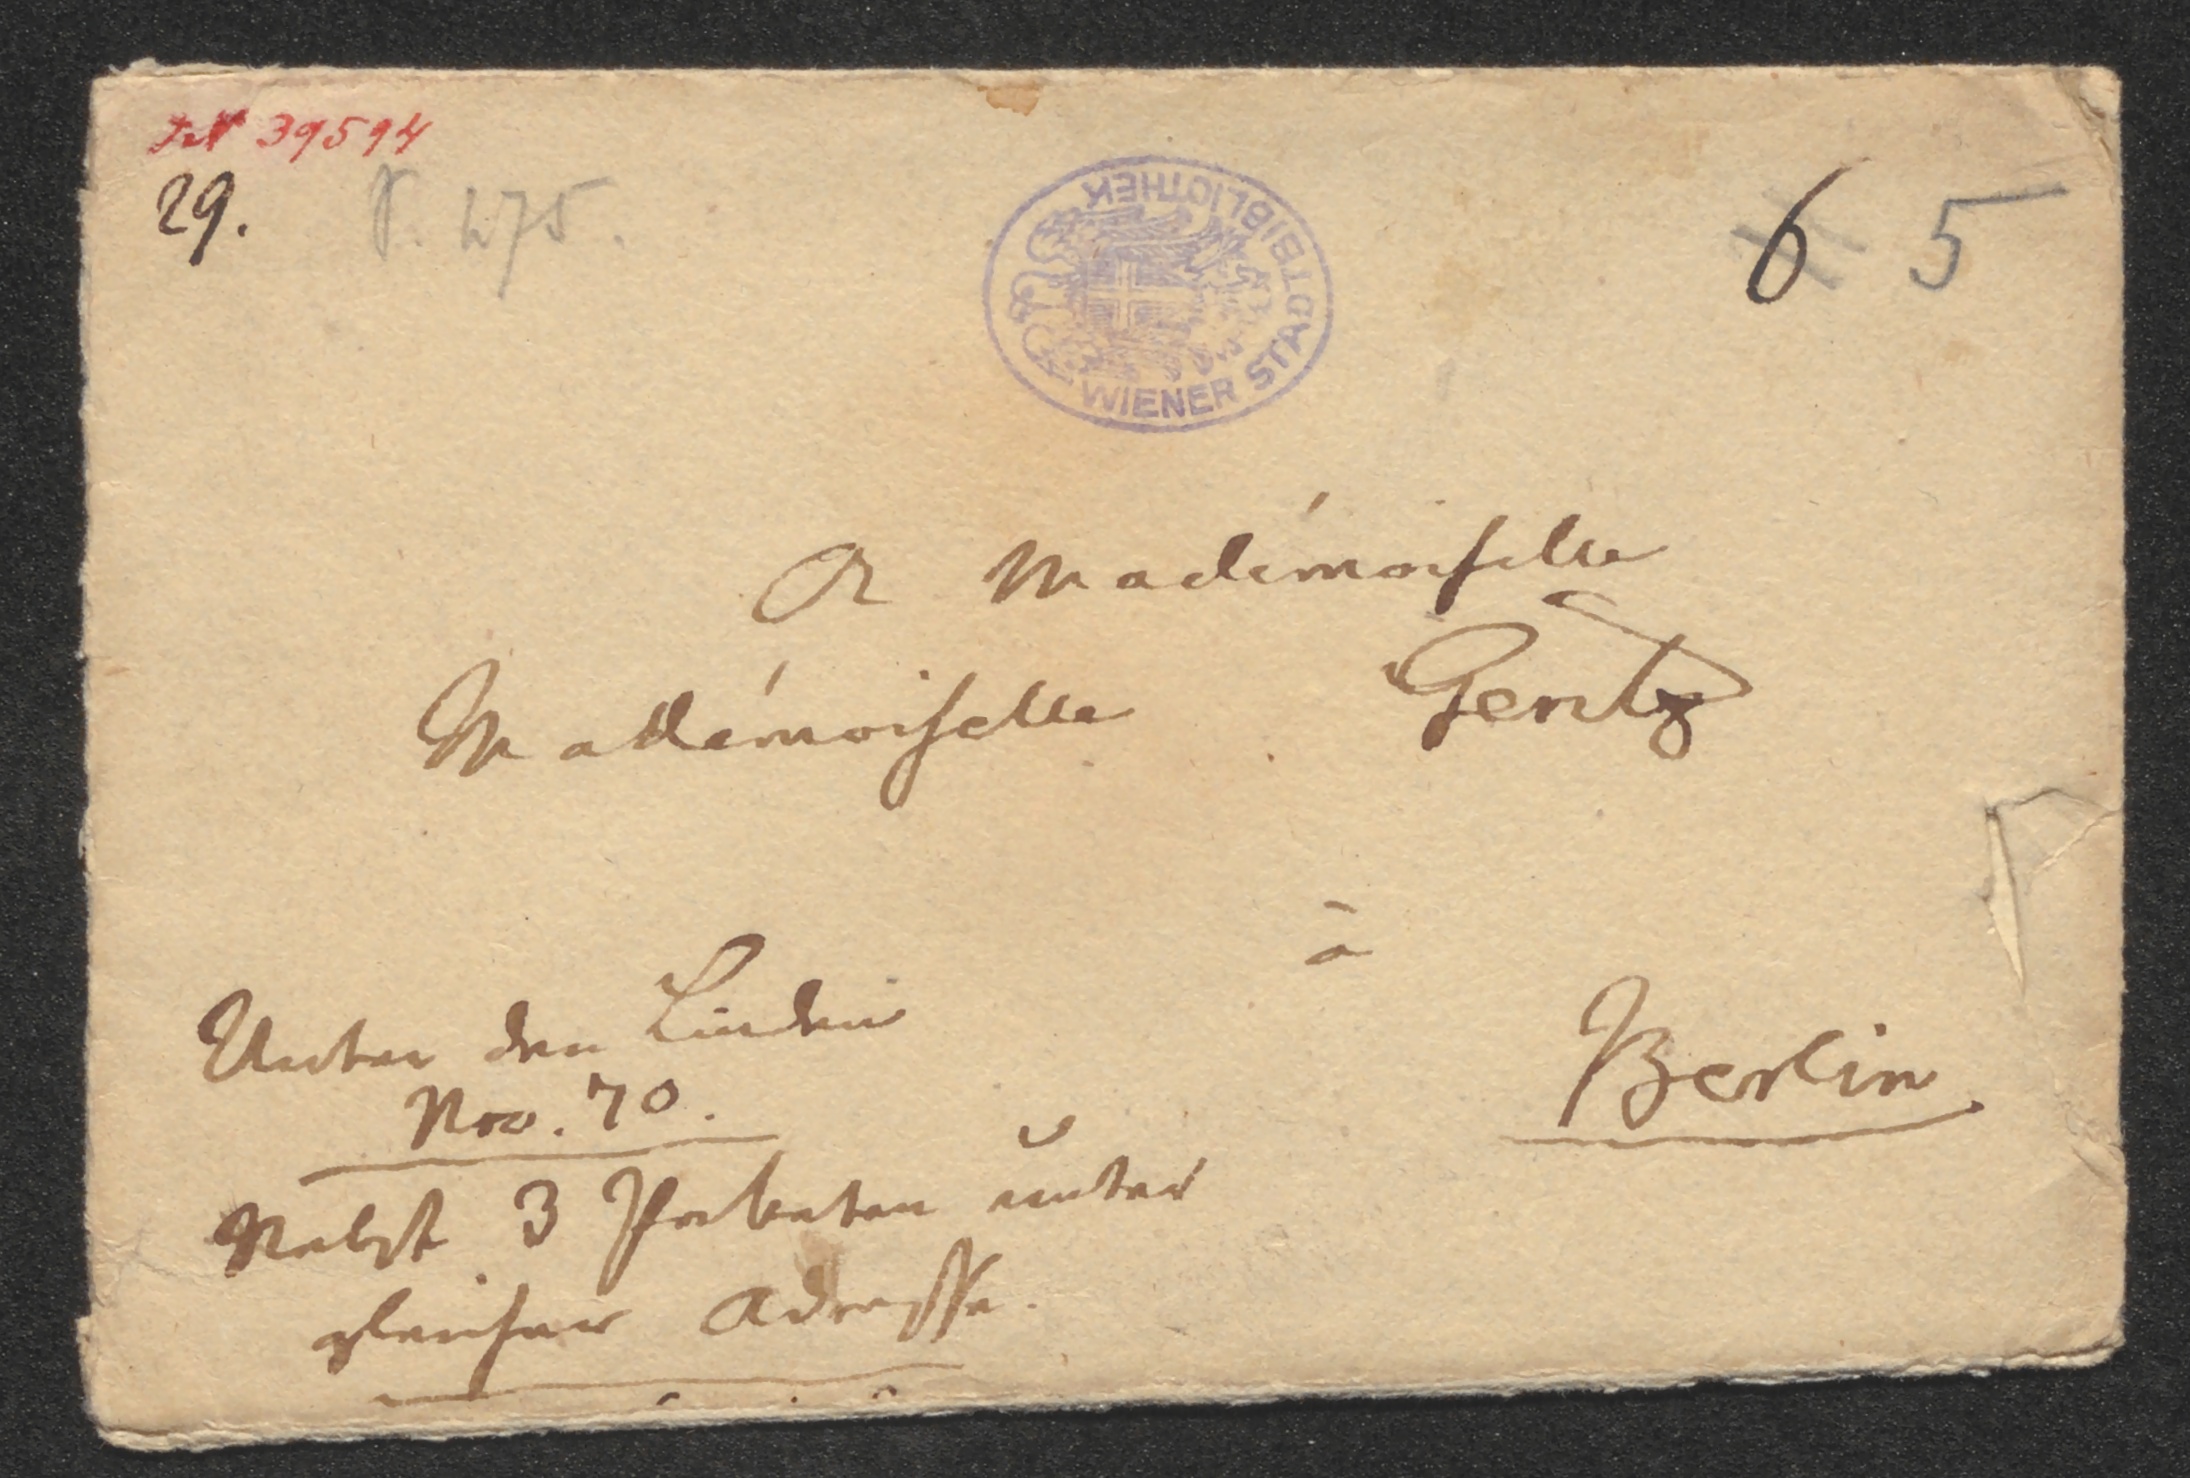 39594
29. 275.
WIENER STADTBIBLIOTHEK
6 5
A Mademoiselle
Mademoiselle Gentz
à
Unter den Linden
Berlin
Nro. 70.
Nebst 3 Paketen unter
gleicher Adresse.